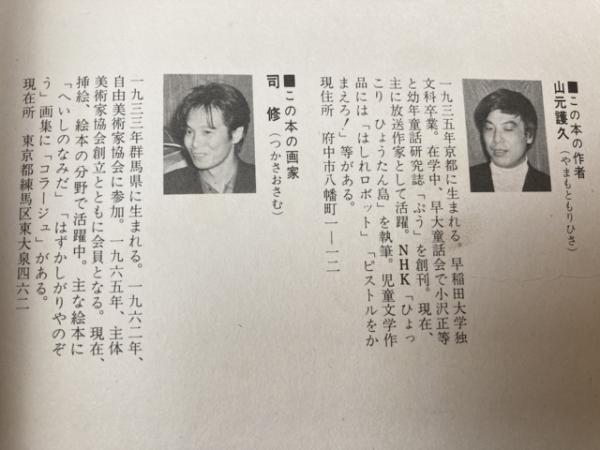 ■この本の作者
山元護久（やまもともりひさ）
一九三五年京都に生まれる。早稲田大学独
文科卒業。在学中、早大童話会で小沢正等
と幼年童話研究誌「ぷう」を創刊。現在、
主に放送作家として活躍。NHK「ひょっ
こり ひょうたん島」を執筆。児童文学作
品には「はしれロボット」「ピストルをか
まえろ！」等がある。
現住所 府中市八幡町一―一二
■この本の画家
司 修（つかさおさむ）
一九三三年群馬県に生まれる。一九六二年、
自由美術家協会に参加。一九六五年、主体
美術家協会創立とともに会員となる。現在、
挿絵、絵本の分野で活躍中。主な絵本に
「へいしのなみだ」「はずかしがりやのぞ
う」画集に「コラージュ」がある。
現在所 東京都練馬区東大泉四六二